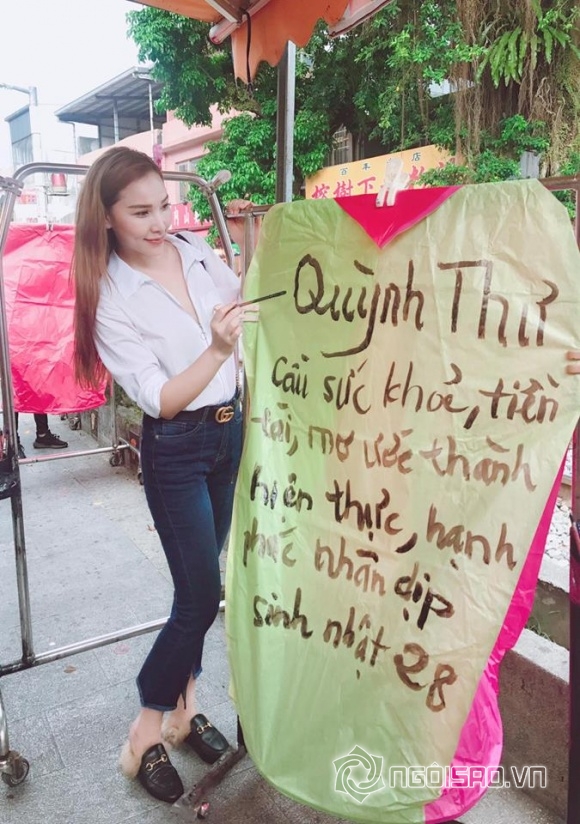 百年 店
榕樹下
Quỳnh Thư
Cầu sức khoẻ, tiền
tài, mơ ước thành
hiện thực, hạnh
phúc nhân dịp
sinh nhật 28
NGÔISAO.VN